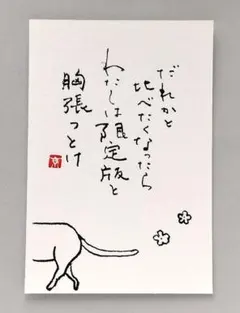 だれかと
比べたくなったら
わたしは限定版と
胸張っとけ